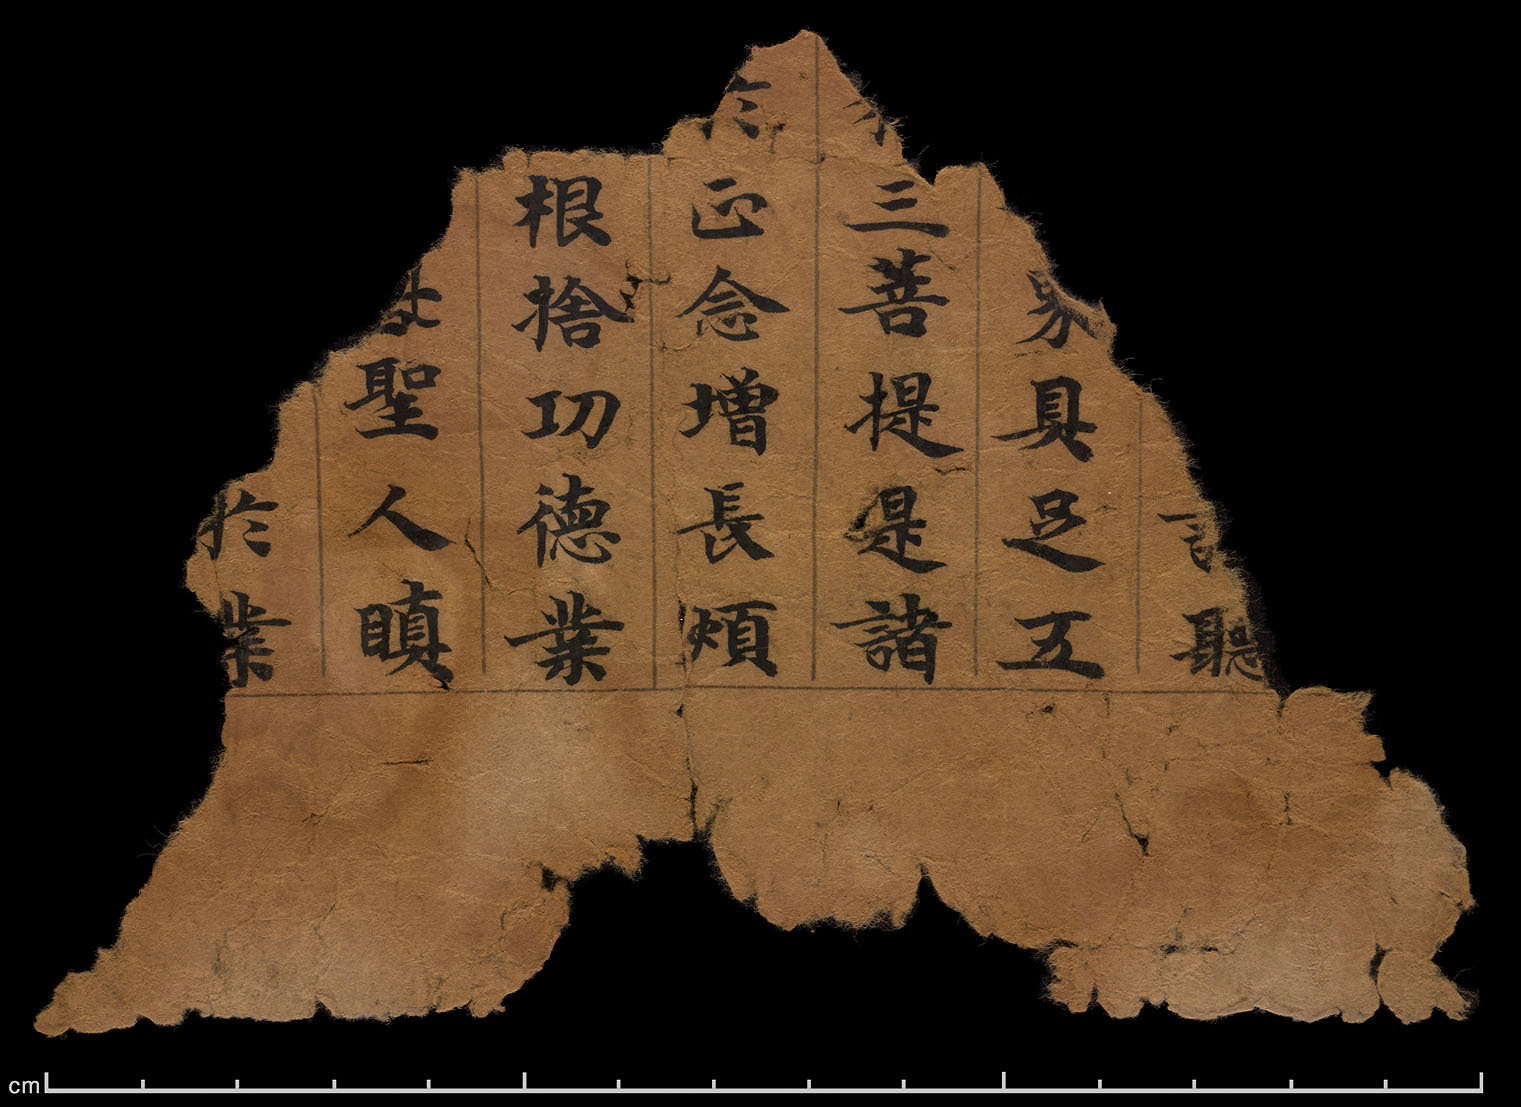 聽
具足五
三菩提是諸
於正念增長煩
根捨功德業
聖人瞋
於業